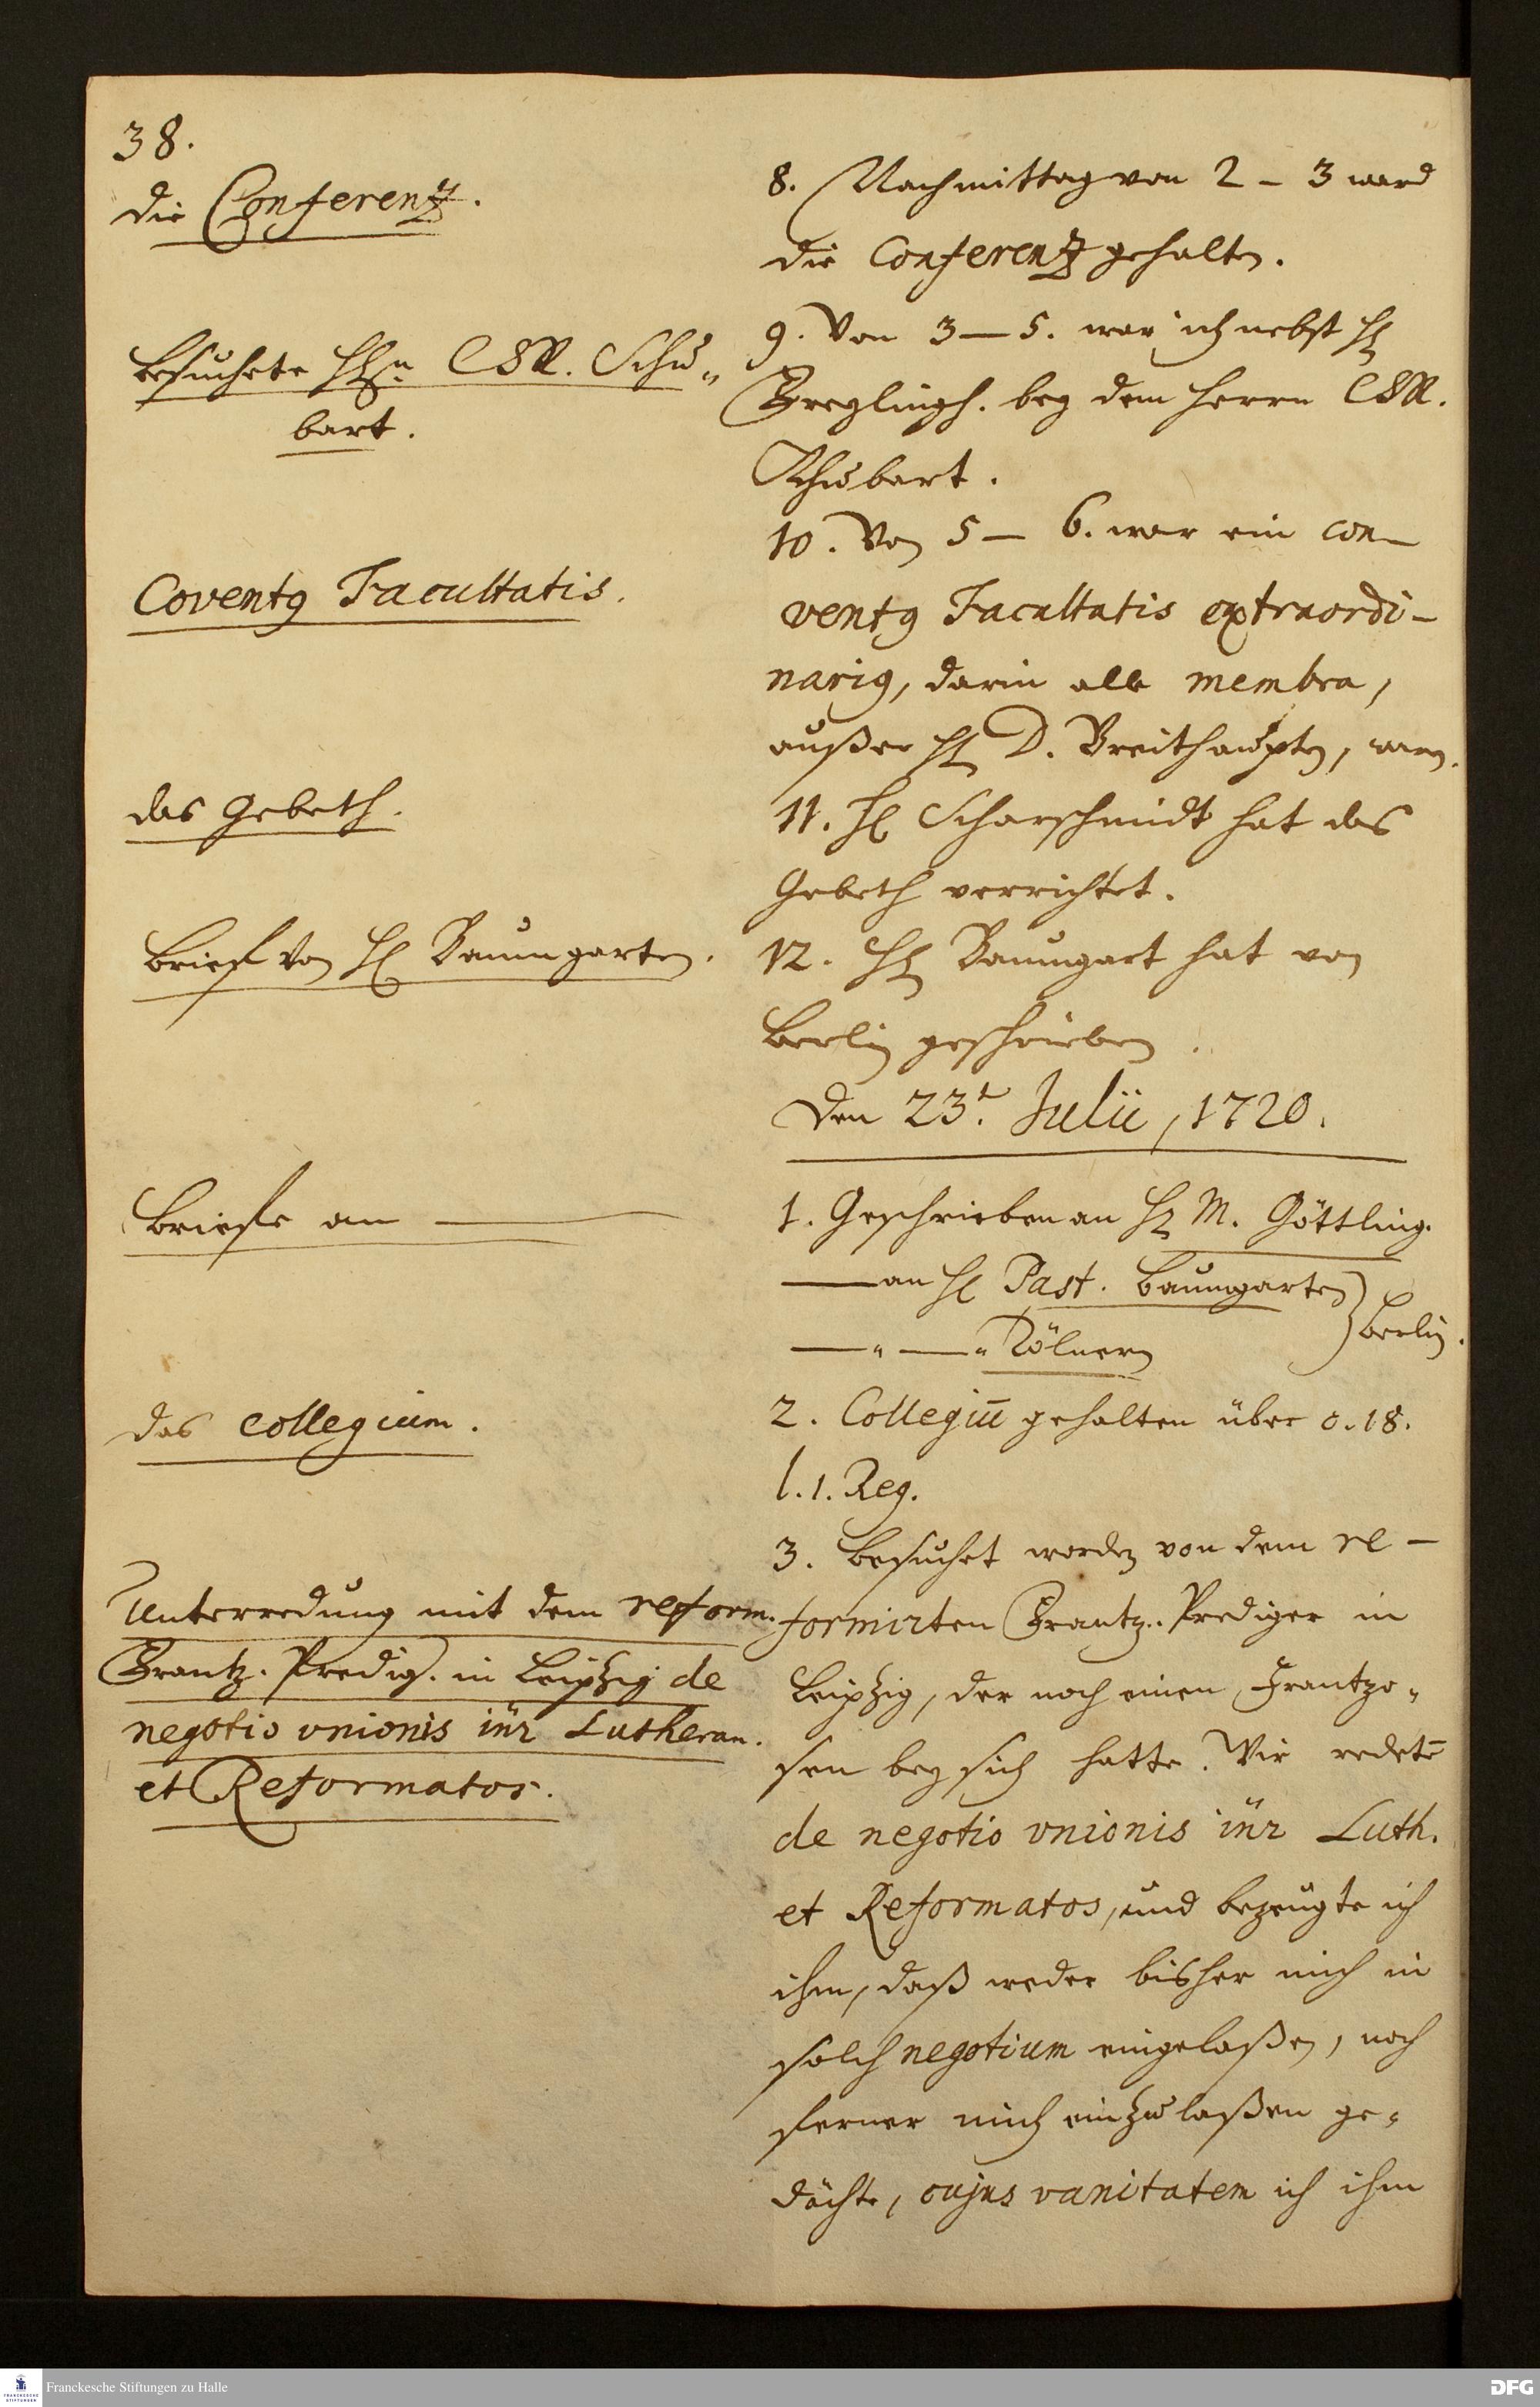 38.
die Conferentz.
Besuchte HErn CSR. Schu„
bart.
Coventg Facultatis.
das Gebeth.
Brief von H Baumgarten.
Briefe an ———
das Collegium.
Unterredung mit dem reform.
Frantz. Predig. in Leipzig de
negotio unionis inr Lutheran.
et Reformatos.
8. Nachmittag von 2 – 3 ward
die Conferentz gehalten.
9. Von 3 — 5. war ich nebst H
Freylingh. bey dem Herrn CSR.
Schubart.
10. Von 5 — 6. war ein con–
ventg Facultatis extraordi–
narig, darin alle membra,
außer H D. Breithaupten, waren.
11. H Scharschmidt hat das
Gebeth verrichtet.
12. H Baumgart hat von
Berlin geschrieben.
Den 23t. Julii, 1720.
1. Geschrieben an H M. Göttling.
— an H Past. Baumgarten
— „ — „ Cölnern } Berlin.
2. Collegiū gehalten über c. 18.
l. 1. Reg.
3. Besuchet worden von dem re–
formirten Frantz. Prediger in
Leipzig, der noch einen Frantzo„
sen bey sich hatte. Wir redetē
de negotio unionis inr Luth.
et Reformatos, und bezeugte ich
ihm, daß weder bisher mich in
solch negotium eingelaßen, noch
ferner mich einzulaßen ge„
dächte, cujus vanitatem ich ihm
Franckesche Stiftungen zu Halle
DFG